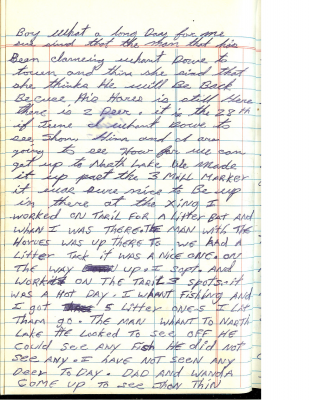 Boy what a long Day for me
we sind that the man that has
Been clameing whant Dowe to
town and thin she sind that
she thinks He will Be Back
Becuse His Hares is still Here
There is 2 Deer. it is the 28th
if June I whant Dowe to
see Shon Him and I are
going to see How far we can
get up to North Lake We made
it up past the 3 Mill MARKER
it wase sure nice to Be up
in there at the xing I
WORKED ON TARIL FOR A LITTER BAT AND
WHAN I WAS THERE. THE MAN WITH THE
HOVUES WAS UP THERE TO WE HAD A
LITTER TACK IT WAS A NICE ONE. ON
THE WAY UP. I SOPT. AND
WORKED ON THE TARIL 3 SPOTS. IT
WAS A HOT DAY. I WHANT FISHING AND
I GOT 5 LITTER ONES I LIT
THAM GO. THE MAN WHANT TO NARTH
LAKE HE LOOKED TO SEE OFF HE
COULD SEE ANY FISH HE DID NOT
SEE ANY. I HAVE NOT SEEN ANY
DEER TO DAY. DAD AND WANDA
COME UP TO SEE SHON THIN